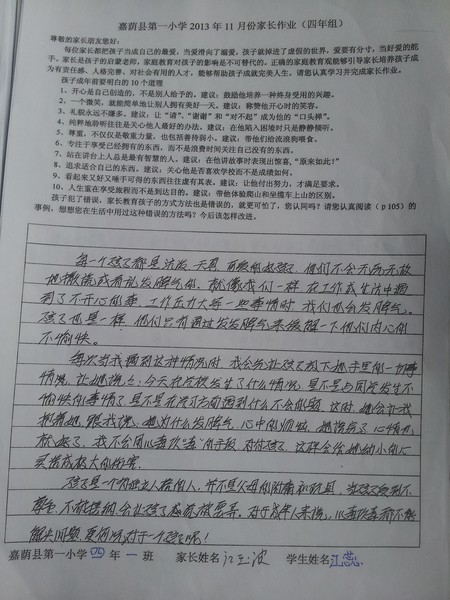 嘉荫县第一小学 2013 年 11 月份家长作业（四年组）
尊敬的家长朋友您好：
每位家长都把孩子当成自己的最爱，当爱滑向了溺爱，孩子就掉进了虚假的世界，爱要有分寸，当好爱的舵
手。家长是孩子的启蒙老师，家庭教育对孩子的影响是不可替代的。正确的家庭教育观能够引导家长培养孩子成
为有责任感、人格完善、对社会有用的人才，能够帮助孩子成就完美人生。请您认真学习并完成家长作业。
孩子成年前要明白的 10 个道理
1、开心是自己创造的，不是别人给予的。建议：鼓励他培养一种终身受用的兴趣。
2、一个微笑，就能简单地让别人拥有美好一天。建议：称赞他开心时的笑容。
3、礼貌永远不嫌多。建议：让“请”、“谢谢”和“对不起”成为他的“口头禅”。
4、纯粹地聆听往往是关心他人最好的办法。建议：在他陷入困境时只是静静倾听。
5、尊重，不仅仅是敬重力量，也包括善待弱小。建议：带他们给流浪狗喂食。
6、专注于享受已经拥有的东西，而不是浪费时间关注自己没有的东西。
7、站在讲台上人总是最有智慧的人。建议：在他讲故事时表现出惊喜，“原来如此！”
8、追求适合自己的东西。建议：关心他是否喜欢学校而不是成绩如何。
9、看起来又好又唾手可得的东西往往虚有其表。建议：让他付出努力，才满足要求。
10、人生重在享受旅程而不是到达目的。建议：带他体验爬山和坐缆车上山的区别。
孩子犯了错误，家长教育孩子的方式方法也是错误的，就更可怕了，您认同吗？请您认真阅读（p105）的
事例，想想您在生活中用过这种错误的方法吗？今后该怎样改进。
每一个孩子都是活泼、天真、可爱的好孩子。他们不会无缘无故
地撒谎或者乱发脾气的。就像我们一样，在工作或生活中遇
到了不开心的事，工作压力大等一些事情时，我们也会发脾气。
孩子也是一样，他们只有通过发发脾气来缓解一下他们内心的
不愉快。
每次当我遇到这种情况时，我会先让孩子放下她手里的一切事
情，让她说说：今天在学校发生了什么情况，是不是与同学发生不
愉快的事情了，是不是在学习方面遇到什么不会的题，这时，她会让我
抱着她，跟我说，她为什么发脾气，心中的烦恼，她说完了，心情也
就好了。我不会用以毒攻“毒”的手段对待孩子，这样会给她幼小的心
灵造成极大的伤害。
孩子是一个独立人格的人，并不是父母的附庸和玩具，当孩子受到不
尊重，不被接纳，会让孩子感觉被冤弃。对于成年人来说，以毒攻毒都不能
解决问题，更何况对于一个孩子呢！
嘉荫县第一小学 四 年 一 班 家长姓名 江玉波 学生姓名 江蕊